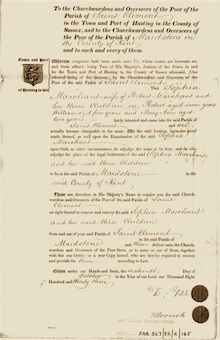 To the Churchwardens and Overseers of the Poor of
the Parish of Saint Clement
in the Town and Port of Hasting in the County of
Sussex, and to the Churchwardens and Overseers of
the Poor of the Parish of Maidstone in
the County of Kent
and to each and every of them.
Town and Port
of Hasting to wit
Whereas complaint hath been made unto Us, whose names are hereunto set,
and Seals affixed, being Two of His Majesty's Justices of the Peace in and
for the Town and Port of Hasting in the County of Sussex aforesaid, (One
whereof being of the Quorum), by the Churchwardens and Overseers of the
Poor of the Parish of Saint Clement that Sophia
Marchant wife of Robert Marchant and
her three Children, viz. Robert aged seven years
William aged five years and Henry Ann aged
two years
lately intruded and came into the said Parish of
Saint Clement and
actually become chargeable to the same: We the said Justices, upon due proof
made thereof, as well upon the Examination of the said Sophia
Marchant
upon Oath, as other circumstances, do adjudge the same to be true, and do also
adjudge the place of the legal Settlement of the said Sophia Marchant
and her said three Children
to be in the Parish of Maidstone in the
said County of Kent
These are, therefore, in His Majesty's Name to require you the said Church-
wardens and Overseers of the Poor of the said Parish of Saint
Clement
on sight hereof to remove and convey the said Sophia Marchant
and her said three Children
from and out of your said Parish of Saint Clement
to the said Parish of
Maidstone and them deliver unto the Church-
wardens and Overseers of the Poor there, or to some or one of them, together
with this our Order, or a true Copy hereof, who are hereby required to receive
and provide for them according to Law.
Given under my Hands and Seals, the
October in the Year of our Lord one Thousand Eight
Hundred and thirty three
PAR 367/32/2/165